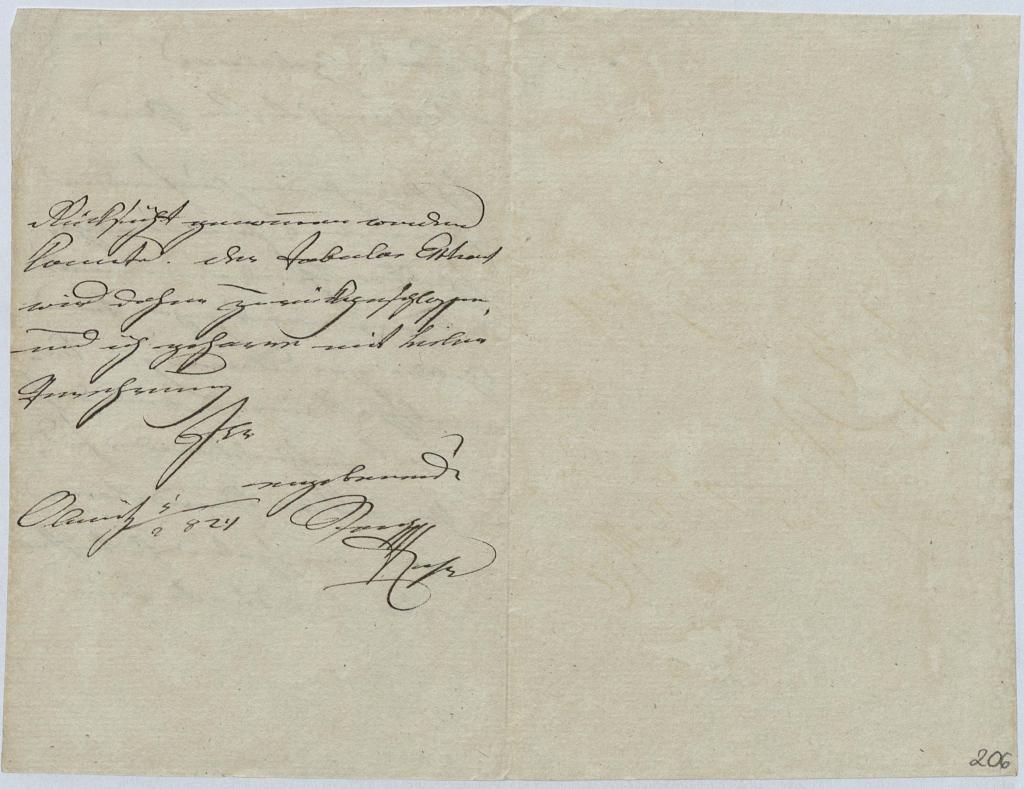 Rücksicht genommen werden
konnte. der Tabular Extract
wird daher zurückgeschlossen,
und ich geharre mit hoher
Verehrung
Ihr
ergebenster
Olmütz 5/2 824
206